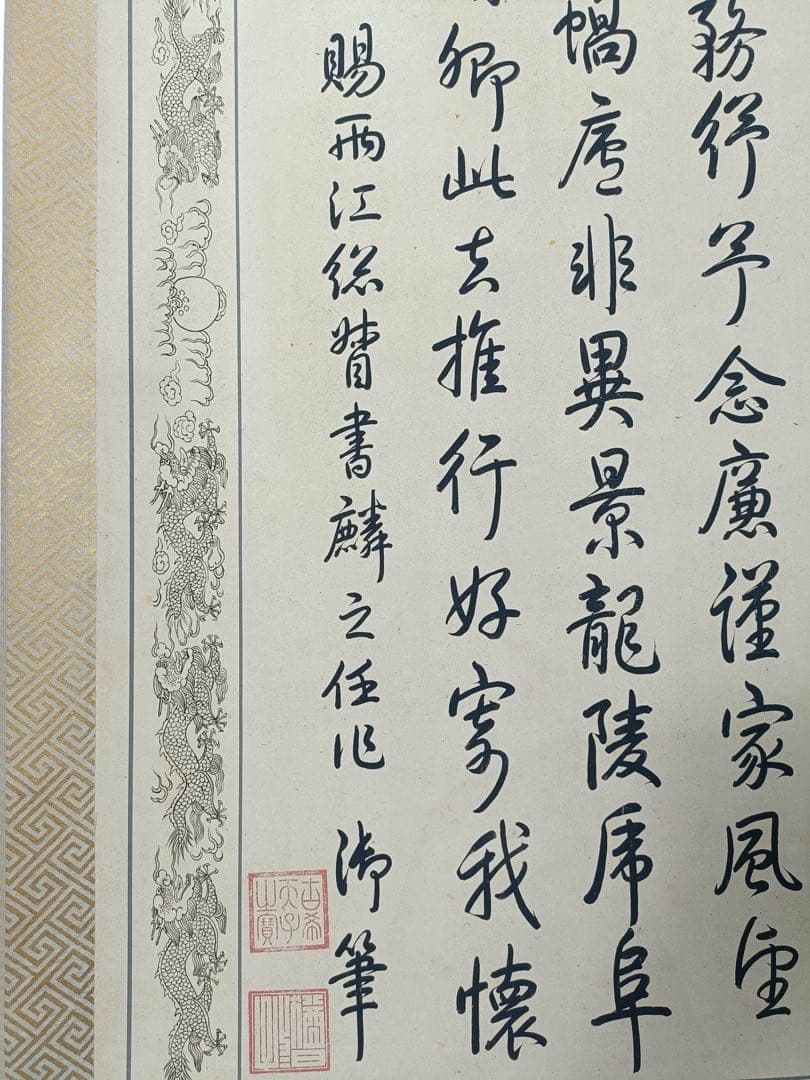 務紓予念廉謹家風望
蝸廬非異景龍陵虎阜
卿此去推行好寄我懷
賜兩江總督書麟之任作 御筆
古希天子之寶